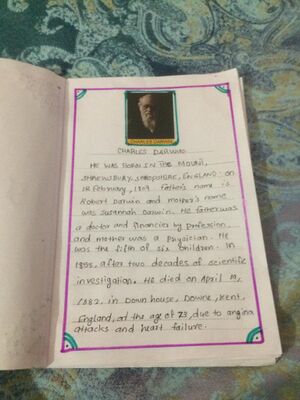 CHARLES DARWIN
CHARLES DARWIN
HE WAS BORN IN THE MOUNT,
SHREWSBURY, SHROPSHIRE, ENGLAND. on
12 February, 1809. Father's name is
Robert Darwin and mother's name
was Susannah Darwin. He father was
a doctor and financier by profession
and mother was a physician. He
was the fifth of six children. In
1855, after two decades of scientific
investigation. He died on April 19,
1882, in Down house, Downe, Kent,
England, at the age of 73, due to angina
attacks and heart failure.